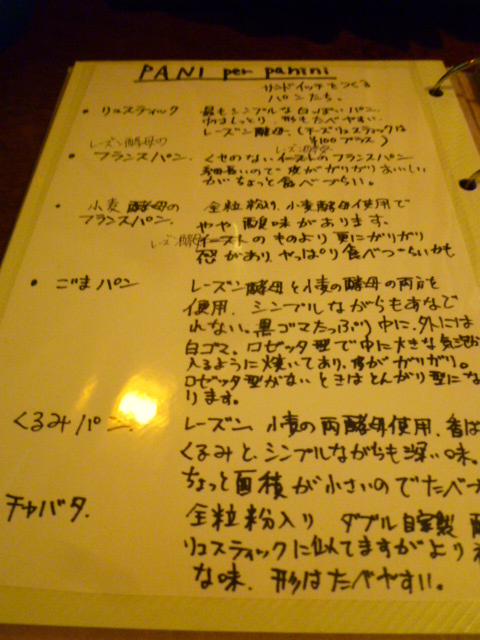 PANI per panini
サンドイッチをつくる
パンたち。
• リュスティック 最もシンプルな白っぽいパン。
中はしっとり、形もたべやすい。
レーズン酵母、(チーズリュスティックは
¥100プラス)
レーズン酵母の
• フランスパン くせのないイーストのフランスパン
レーズン酵母
細長いので皮がガリガリおいしい
がちょっと食べづらい。
• 小麦酵母の 全粒粉入り、小麦酵母使用で
フランスパン. やや酸味があります。
レーズン酵母 イーストのものより更にガリガリ
感があり、やっぱり食べづらいかも
• ごまパン レーズン酵母と小麦の酵母の両方を
使用、シンプルながらもあなど
れない。黒ゴマたっぷり中に、外には
白ゴマ。ロゼッタ型で中に大きな気泡が
入るように焼いており、皮がガリガリ。
ロゼッタ型がないときはとんがり型にな
ります。
くるみパン. レーズン、小麦の両酵母使用、香ば
くるみと、シンプルながらも深い味。
ちょっと面積が小さいのでたべ
チャバタ. 全粒粉入り ダブル自家製
リュスティックに似てますがより
な味、形はたべやすい。